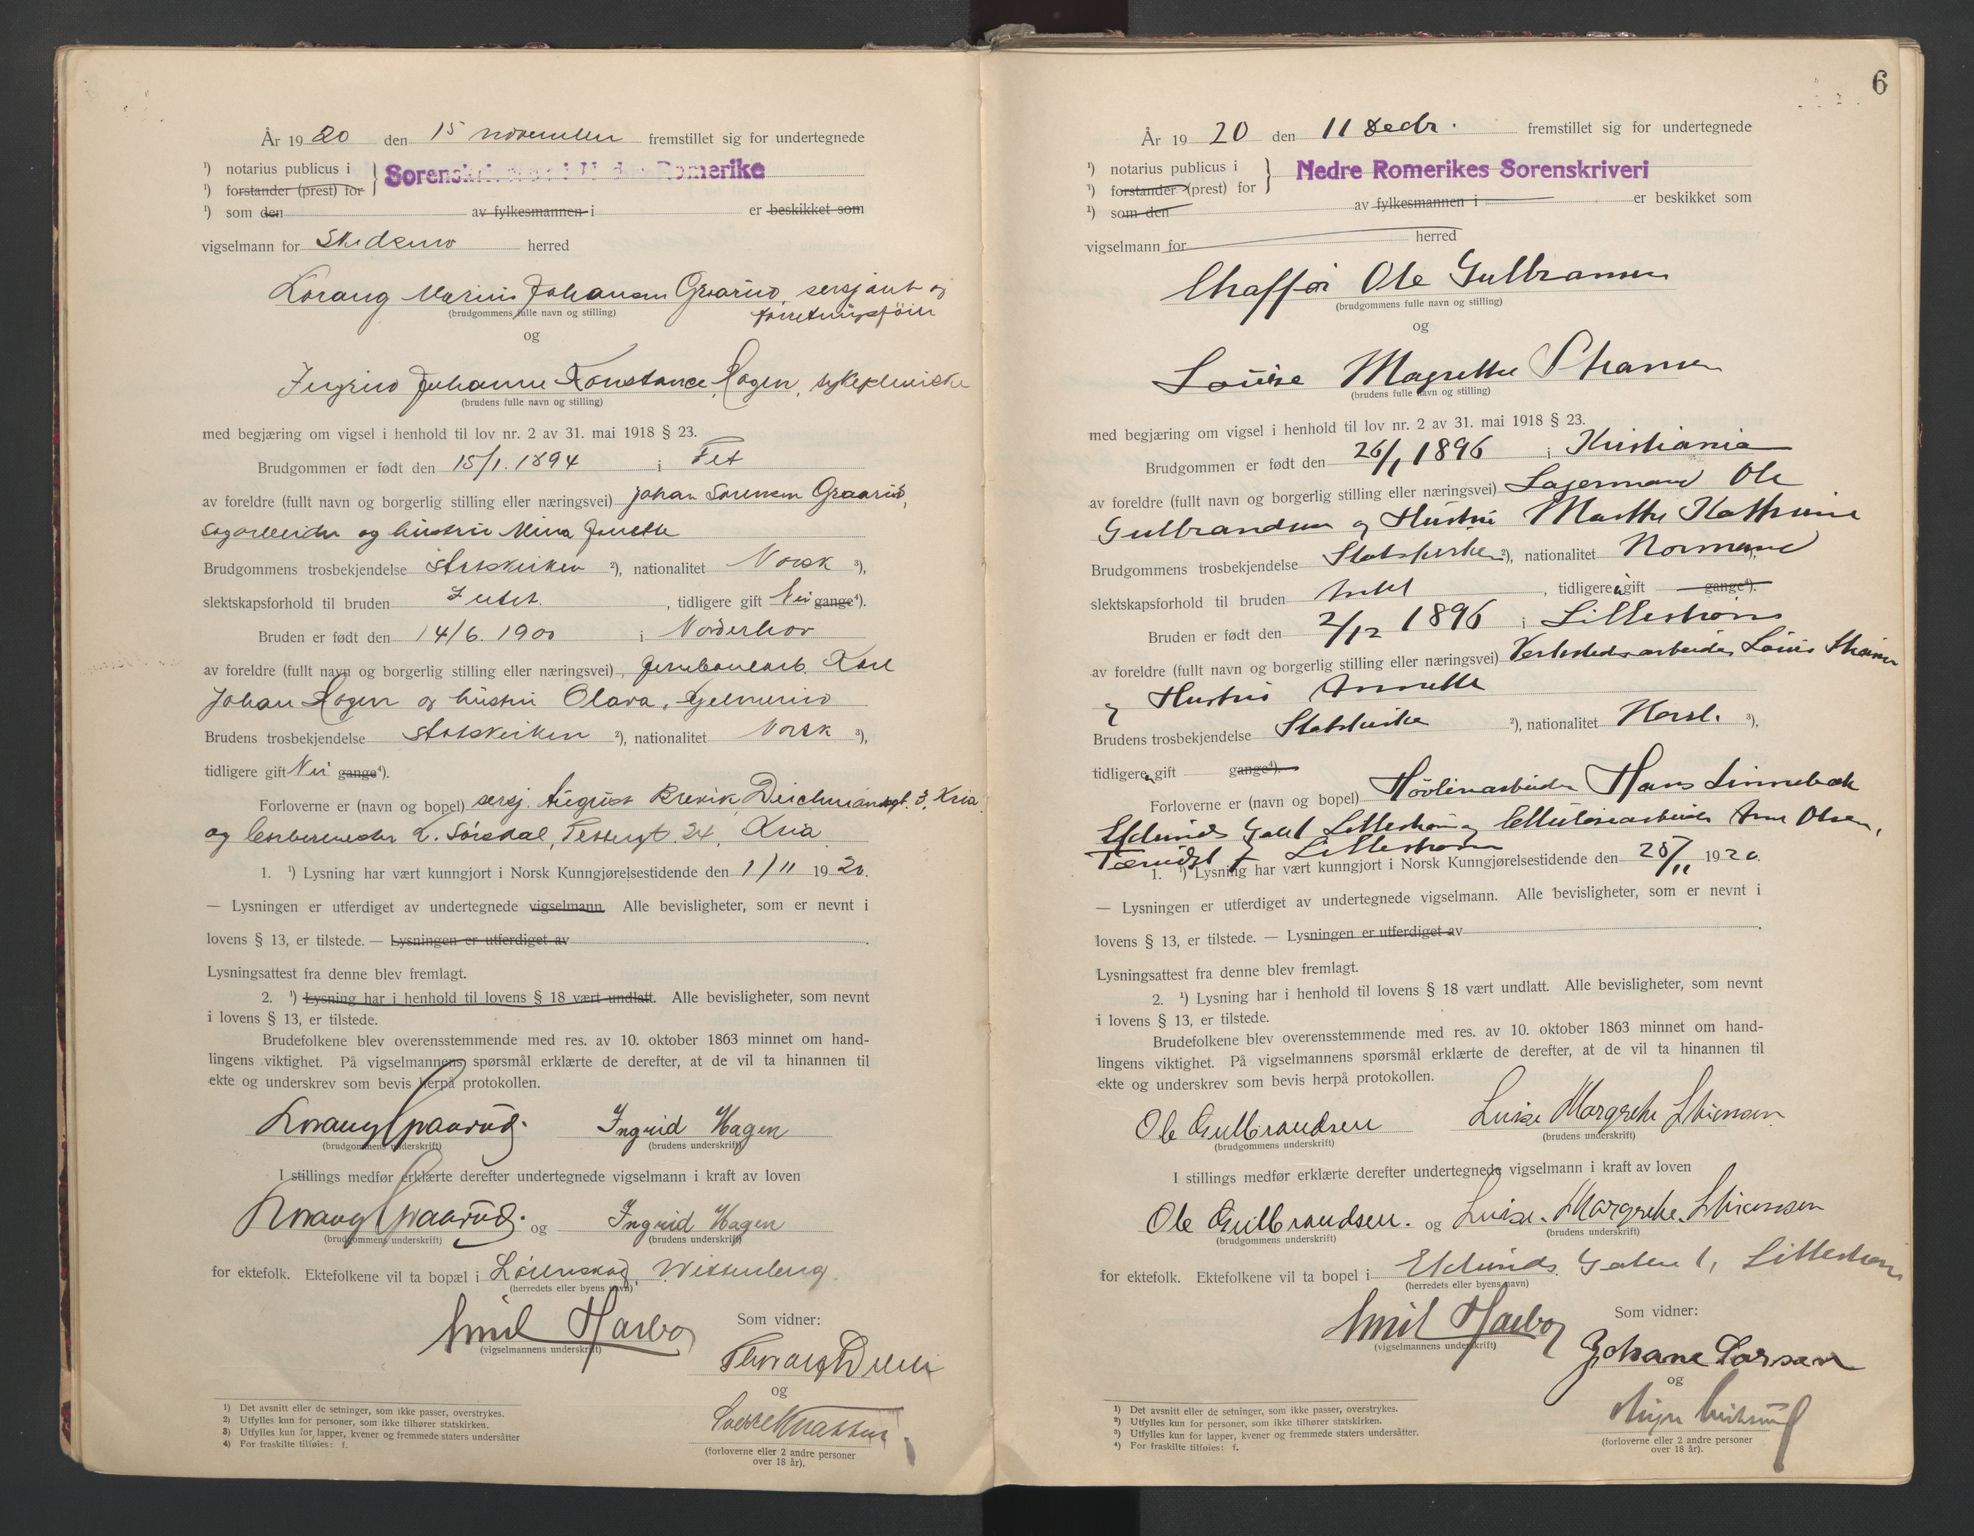 År 1920 den 15 november fremstillet sig for undertegnede
¹) notarius publicus i
¹) forstander (prest) for
Sorenskriveren i Nedre Romerike
¹) som den av fylkesmannen i er beskikket som
vigselmann for Skedsmo herred
Lorang Marius Johansen Graarud, sersjant og
forretningsfører
(brudgommens fulle navn og stilling)
og
Ingrid Johanne Konstance Hagen, sykepleierske
(brudens fulle navn og stilling)
med begjæring om vigsel i henhold til lov nr. 2 av 31. mai 1918 § 23.
Brudgommen er født den 15/1. 1894 i Fet
av foreldre (fullt navn og borgerlig stilling eller næringsvei) Johan Sørensen Graarud,
sagarbeider og hustru Mina Jonette
Brudgommens trosbekjendelse Statskirken ²), nationalitet Norsk ³),
slektskapsforhold til bruden Intet. , tidligere gift Nei gange⁴).
Bruden er født den 14/6. 1900 i Norderhov
av foreldre (fullt navn og borgerlig stilling eller næringsvei) Jernbanearb. Karl
Johan Hagen og hustru Olava, Hjelmerud
Brudens trosbekjendelse Statskirken ²), nationalitet Norsk ³),
tidligere gift Nei gange⁴).
Forloverne er (navn og bopel) sersj. August Brevik, Deichmansgt. 3, Kria
og L. Sørsdal, 24, Kria
1. ¹) Lysning har vært kunngjort i Norsk Kunngjørelsestidende den 1/11 1920.
— Lysningen er utferdiget av undertegnede vigselmann. Alle bevisligheter, som er nevnt i
lovens § 13, er tilstede. — Lysningen er utferdiget av .
Lysningsattest fra denne blev fremlagt.
2. ¹) Lysning har i henhold til lovens § 18 vært undlatt. Alle bevisligheter, som nevnt
i lovens § 13, er tilstede.
Brudefolkene blev overensstemmende med res. av 10. oktober 1863 minnet om hand-
lingens viktighet. På vigselmannens spørsmål erklærte de derefter, at de vil ta hinannen til
ekte og underskrev som bevis herpå protokollen.
Lorang Graarud. Ingrid Hagen
(brudgommens underskrift) (brudens underskrift)
I stillings medfør erklærte derefter undertegnede vigselmann i kraft av loven
Lorang Graarud. og Ingrid Hagen
(brudgommens underskrift) (brudens underskrift)
for ektefolk. Ektefolkene vil ta bopæl i Lørenskog, Wittenberg.
(herredets eller byens navn)
Emil Harboe
(vigselmannens underskrift)
Som vidner:
og
(forloverne eller 2 andre personer
over 18 år).
1) Det avsnitt eller de setninger, som ikke passer, overstrykes.
2) Utfylles kun for personer, som ikke tilhører statskirken.
3) Utfylles kun for lapper, kvener og fremmede staters undersåtter
4) For fraskilte tilføies: f.
6
År 1920 den 11 Decbr. fremstillet sig for undertegnede
¹) notarius publicus i
¹) forstander (prest) for
Nedre Romerikes Sorenskriveri
¹) som den av fylkesmannen i er beskikket som
vigselmann for herred
Chaffør Ole Gulbransen
(brudgommens fulle navn og stilling)
og
Louise Magrethe Stramer
(brudens fulle navn og stilling)
med begjæring om vigsel i henhold til lov nr. 2 av 31. mai 1918 § 23.
Brudgommen er født den 26/1 1896 i Kristiania
av foreldre (fullt navn og borgerlig stilling eller næringsvei) Lagermand Ole
Gulbrandsen og Hustru Marthe Kathrine
Brudgommens trosbekjendelse Statskirken ²), nationalitet Normand ³),
slektskapsforhold til bruden Intet , tidligere gift gange⁴).
Bruden er født den 2/12 1896 i Lillestrøm
av foreldre (fullt navn og borgerlig stilling eller næringsvei) Verkstedsarbeider Louis
og Hustru Annette
Brudens trosbekjendelse Statskirke ²), nationalitet Norsk. ³),
tidligere gift gange⁴).
Forloverne er (navn og bopel) Høvleriarbeider Hans Linnebæk
Eklunds Gate 1 Lillestrøm og Cellulosearbeider Arne Olsen,
Lillestrøm
1. ¹) Lysning har vært kunngjort i Norsk Kunngjørelsestidende den 25/11 1920.
— Lysningen er utferdiget av undertegnede vigselmann. Alle bevisligheter, som er nevnt i
lovens § 13, er tilstede. — Lysningen er utferdiget av .
Lysningsattest fra denne blev fremlagt.
2. ¹) Lysning har i henhold til lovens § 18 vært undlatt. Alle bevisligheter, som nevnt
i lovens § 13, er tilstede.
Brudefolkene blev overensstemmende med res. av 10. oktober 1863 minnet om hand-
lingens viktighet. På vigselmannens spørsmål erklærte de derefter, at de vil ta hinannen til
ekte og underskrev som bevis herpå protokollen.
Ole Gulbrandsen Luise Margrehe
(brudgommens underskrift) (brudens underskrift)
I stillings medfør erklærte derefter undertegnede vigselmann i kraft av loven
Ole Gulbrandsen. og Luise. Margrehe.
(brudgommens underskrift) (brudens underskrift)
for ektefolk. Ektefolkene vil ta bopel i Eklunds Gaten 1, Lillestrøm
(herredets eller byens navn)
Emil Harboe
(vigselmannens underskrift)
Som vidner:
Johane Larsen
og
(forloverne eller 2 andre personer
over 18 år).
1) Det avsnitt eller de setninger, som ikke passer, overstrykes.
2) Utfylles kun for personer, som ikke tilhører statskirken.
3) Utfylles kun for lapper, kvener og fremmede staters undersåtter.
4) For fraskilte tilføies: f.